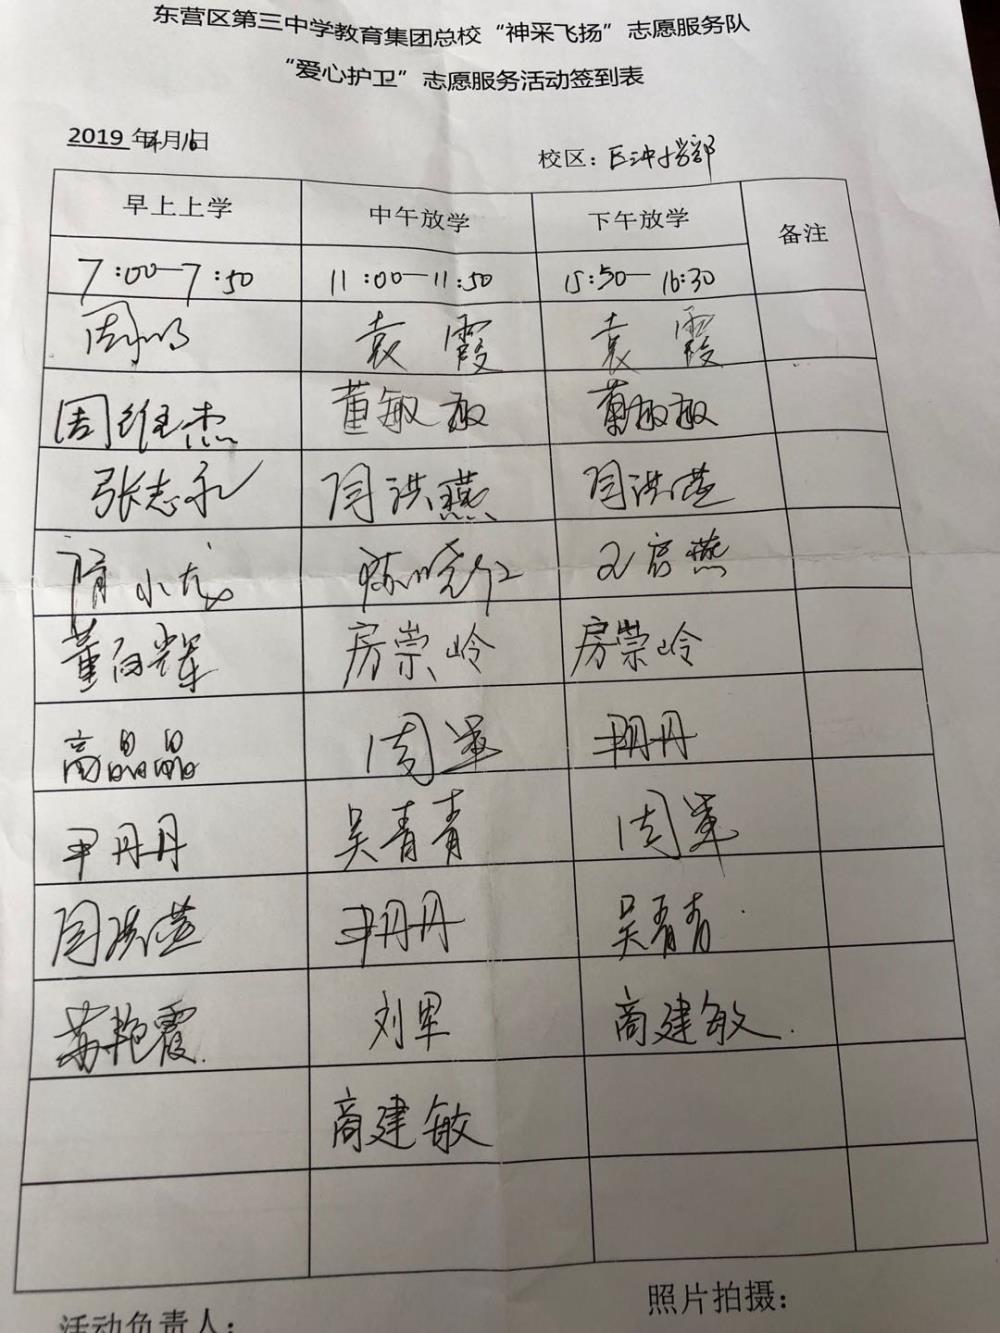 东营区第三中学教育集团总校“神采飞扬”志愿服务队
“爱心护卫”志愿服务活动签到表
2019 年4月16日 校区：
早上上学 中午放学 下午放学 备注
7:00—7:50 11:00—11:50 15:50—16:30
袁霞 袁霞
周维杰 董敏敏 董敏敏
张志永 闫洪燕 闫洪燕
隋小龙
房崇岭 房崇岭
高晶晶 周军 尹丹丹
尹丹丹 吴青青 周军
闫洪燕 尹丹丹 吴青青
苏艳霞 刘军 商建敏
商建敏
活动负责人： 照片拍摄：